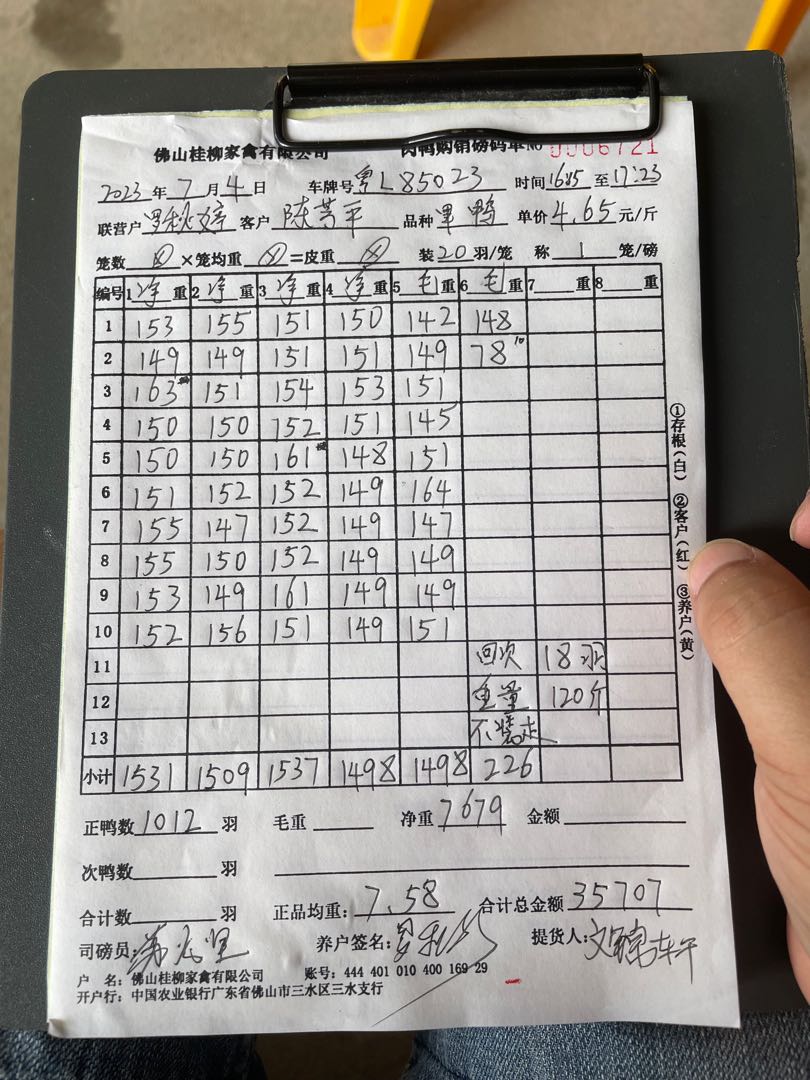 佛山桂柳家禽有限公司 肉鸭购销磅码单 NO 0006721
2023年7月4日 车牌号粤L85023 时间1645至17:23
联营户 客户 陈芳平 品种 鸭 单价4.65元/斤
笼数 ×笼均重 =皮重 装20羽/笼 称1笼/磅
编号 1净重 2净重 3净重 4净重 5毛重 6毛重 7 重 8 重
1 153 155 151 150 142 148
2 149 149 151 151 149 78 10
3 163 151 154 153 151
4 150 150 152 151 145
5 150 150 161 148 151
6 151 152 152 149 164
7 155 147 152 149 147
8 155 150 152 149 149
9 153 149 161 149 149
10 152 156 151 149 151
11 回次 18羽
12 重量 120斤
13 不装走
小计 1531 1509 1537 1498 1498 226
正鸭数1012羽 毛重 净重7679 金额
次鸭数 羽
合计数 羽 正品均重:7.58 合计总金额35707
司磅员: 养户签名: 提货人:
户 名:佛山桂柳家禽有限公司 账号:444 401 010 400 169 29
开户行:中国农业银行广东省佛山市三水区三水支行
①存根(白) ②客户(红) ③养户(黄)